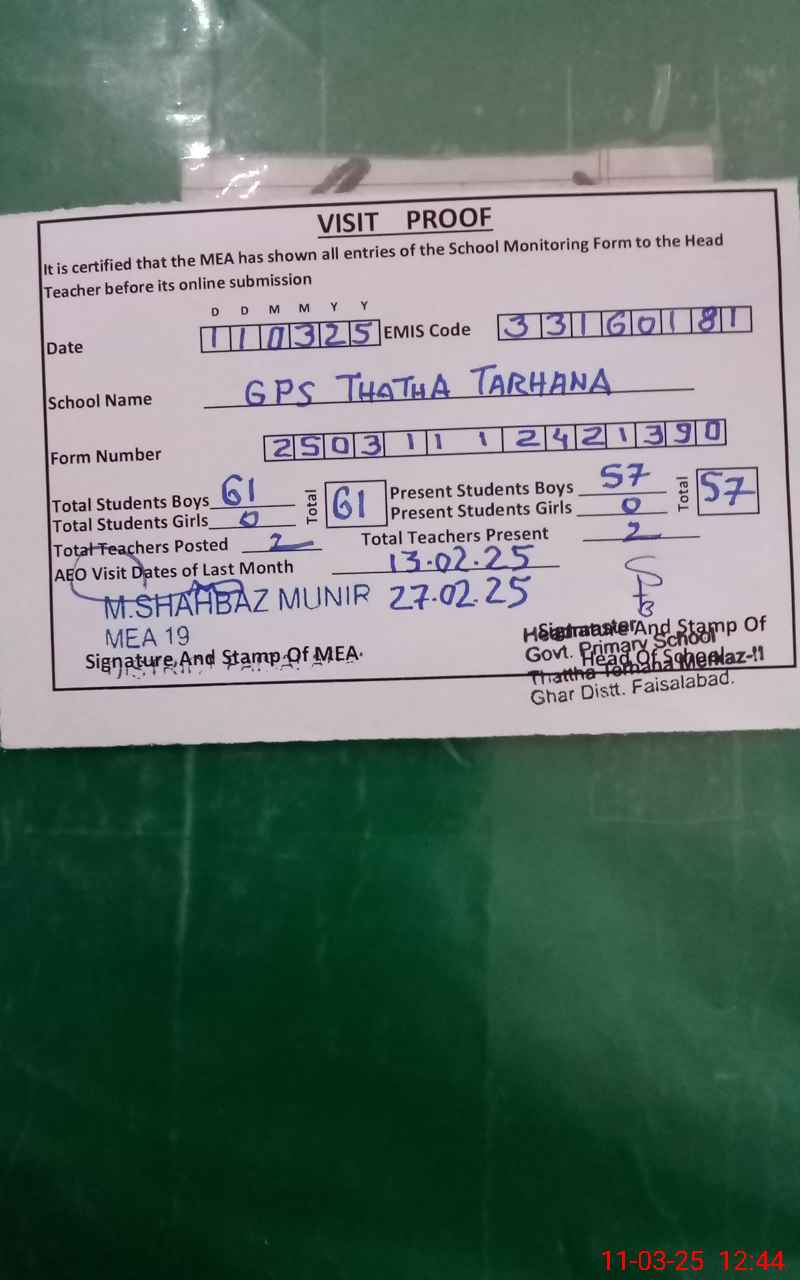 VISIT PROOF
It is certified that the MEA has shown all entries of the School Monitoring Form to the Head
Teacher before its online submission
D D M M Y Y
Date 110325 EMIS Code 33160181
School Name GPS THATHA TARHANA
Form Number 25031112421390
Total Students Boys 61 Total 61 Present Students Boys 57 Total 57
Total Students Girls 0 Present Students Girls 0
Total Teachers Posted 2 Total Teachers Present 2
AEO Visit Dates of Last Month 13.02.25
M.SHAHBAZ MUNIR 27.02.25
MEA 19
Signature And Stamp Of MEA.
Signature And Stamp Of
Head Of School
Headmaster
Govt. Primary School
Thattha
Ghar Distt. Faisalabad.
11-03-25 12:44